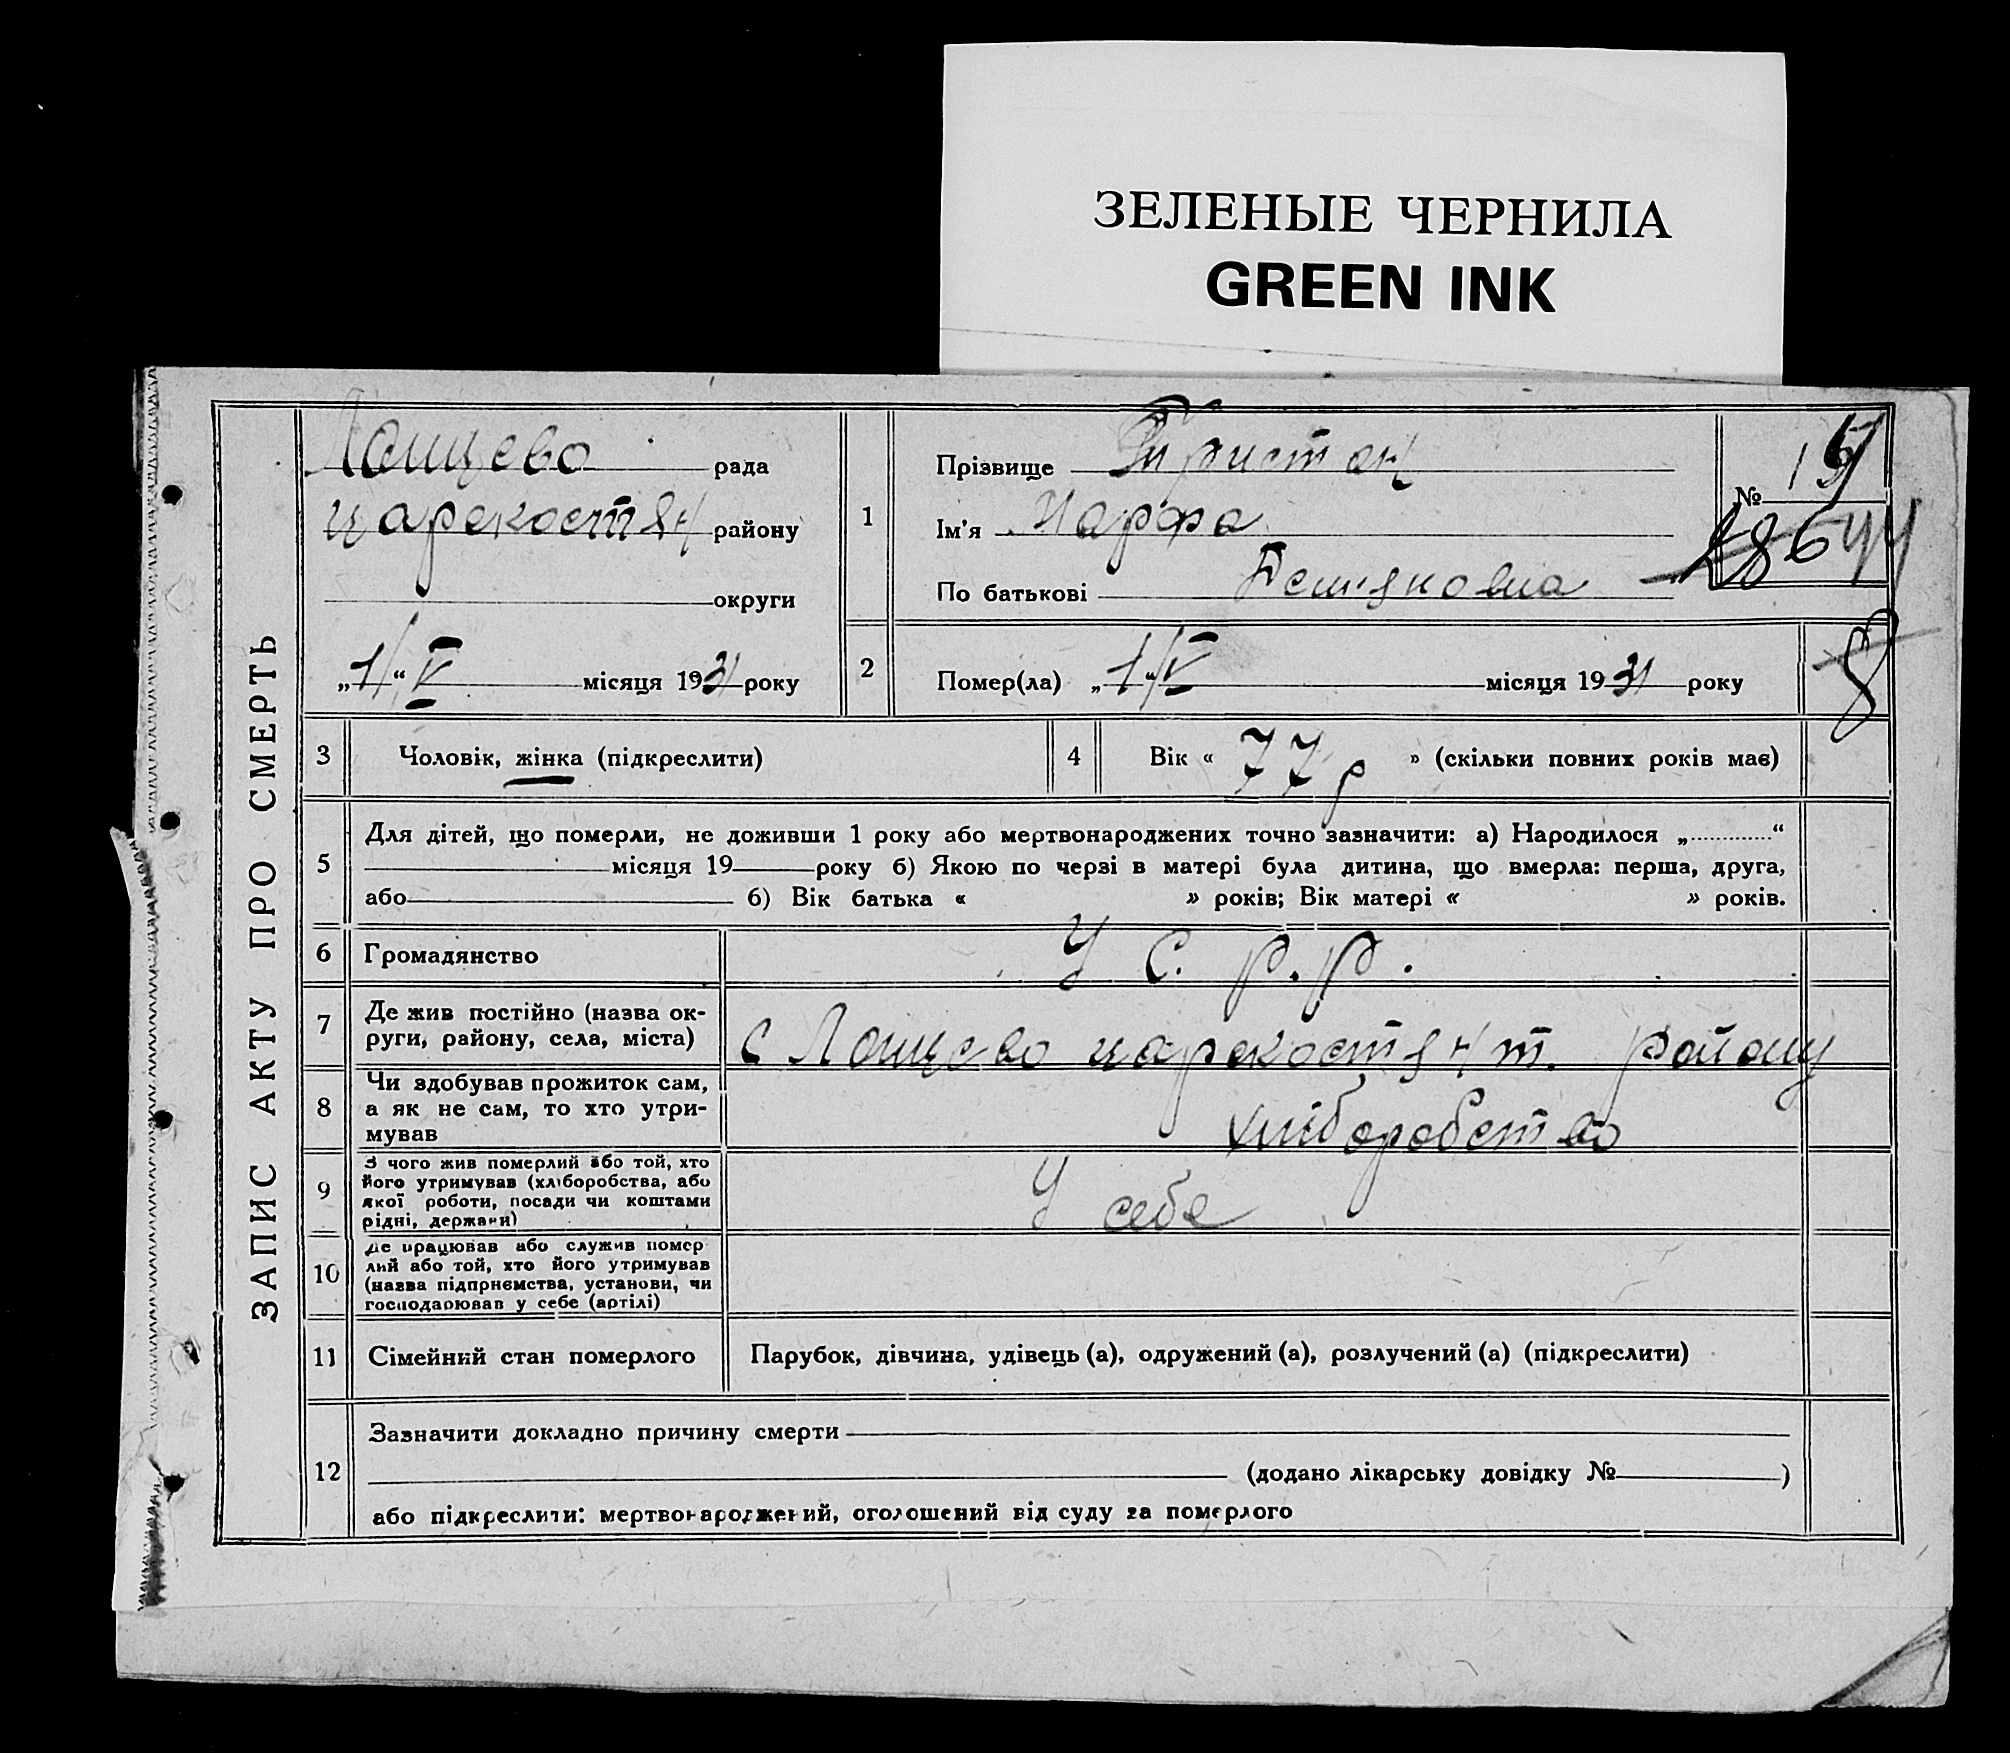 ЗЕЛЕНЫЕ ЧЕРНИЛА
GREEN INK
ЗАПИС АКТУ ПРО СМЕРТЬ
Лащево рада
царекостян району
округи
„1“ V місяця 1931 року
1
Прізвище
Ім'я Марфа
По батькові
№ 15
2
Помер(ла) „1“ V місяця 1931 року
8
3 Чоловік, жінка (підкреслити)
4 Вік « 77 р » (скільки повних років має)
5
Для дітей, що померли, не доживши 1 року або мертвонароджених точно зазначити: а) Народилося „ “
місяця 19 року б) Якою по черзі в матері була дитина, що вмерла: перша, друга,
або б) Вік батька « » років; Вік матері « » років.
6 Громадянство У С. Р. Р.
7
Де жив постійно (назва ок-
руги, району, села, міста)
с Лащево царекостянт. району
8
Чи здобував прожиток сам,
а як не сам, то хто утри-
мував
хліборобство
9
З чого жив померлий або той, хто
його утримував (хліборобства, або
якої роботи, посади чи коштами
рідні, держави)
У себе
10
Де працював або служив помер
лий або той, хто його утримував
(назва підприємства, установи, чи
господарював у себе (артілі)
11 Сімейний стан померлого Парубок, дівчина, удівець (а), одружений (а), розлучений (а) (підкреслити)
12
Зазначити докладно причину смерти
(додано лікарську довідку № )
або підкреслити: мертвонароджений, оголошений від суду за померлого